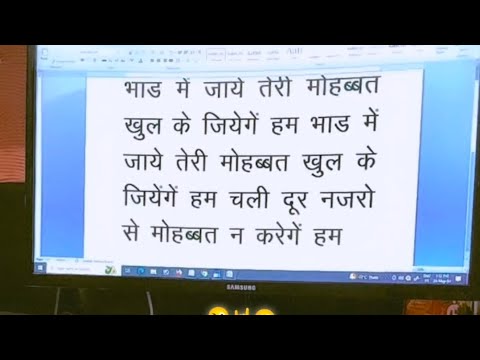 भाड में जाये तेरी मोहब्बत
खुल के जियेगें हम भाड में
जाये तेरी मोहब्बत खुल के
जियेंगें हम चली दूर नजरो
से मोहब्बत न करेगें हम
SAMSUNG